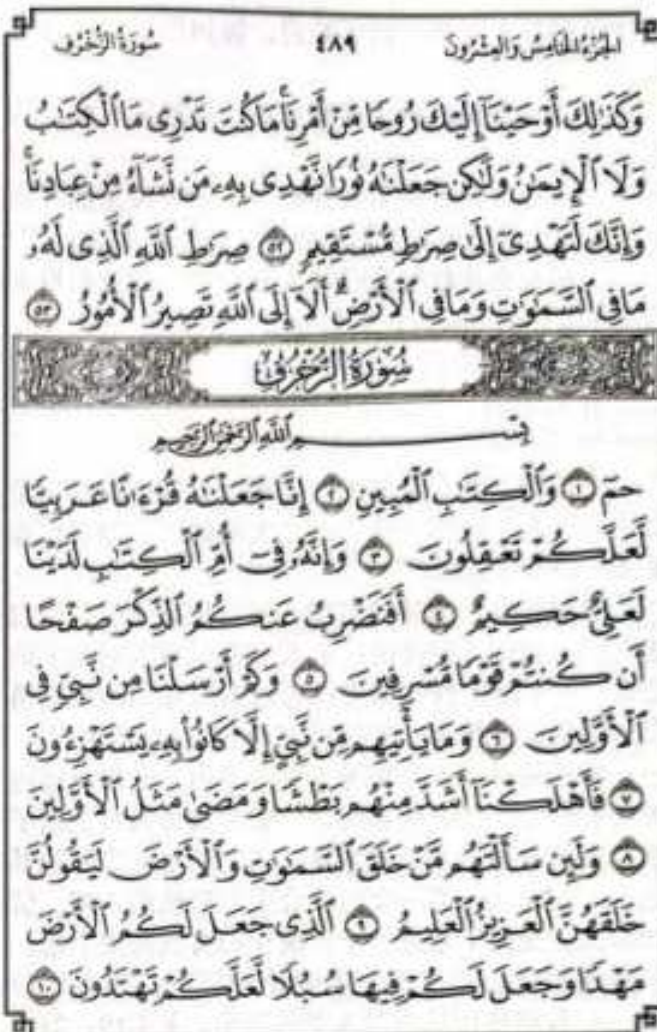 سُورَةُ الزُّخْرُفِ ٤٨٩ الجُزْءُ الخَامِسُ وَالعِشْرُونَ
وَكَذَٰلِكَ أَوْحَيْنَآ إِلَيْكَ رُوحًا مِّنْ أَمْرِنَا ۚ مَا كُنتَ تَدْرِى مَا ٱلْكِتَٰبُ
وَلَا ٱلْإِيمَٰنُ وَلَٰكِن جَعَلْنَٰهُ نُورًا نَّهْدِى بِهِۦ مَن نَّشَآءُ مِنْ عِبَادِنَا ۚ
وَإِنَّكَ لَتَهْدِىٓ إِلَىٰ صِرَٰطٍ مُّسْتَقِيمٍ ۝٥٢ صِرَٰطِ ٱللَّهِ ٱلَّذِى لَهُۥ
مَا فِى ٱلسَّمَٰوَٰتِ وَمَا فِى ٱلْأَرْضِ ۗ أَلَآ إِلَى ٱللَّهِ تَصِيرُ ٱلْأُمُورُ ۝٥٣
سُورَةُ الزُّخْرُفِ
بِسْمِ ٱللَّهِ ٱلرَّحْمَٰنِ ٱلرَّحِيمِ
حمٓ ۝١ وَٱلْكِتَٰبِ ٱلْمُبِينِ ۝٢ إِنَّا جَعَلْنَٰهُ قُرْءَٰنًا عَرَبِيًّا
لَّعَلَّكُمْ تَعْقِلُونَ ۝٣ وَإِنَّهُۥ فِىٓ أُمِّ ٱلْكِتَٰبِ لَدَيْنَا
لَعَلِىٌّ حَكِيمٌ ۝٤ أَفَنَضْرِبُ عَنكُمُ ٱلذِّكْرَ صَفْحًا
أَن كُنتُمْ قَوْمًا مُّسْرِفِينَ ۝٥ وَكَمْ أَرْسَلْنَا مِن نَّبِىٍّ فِى
ٱلْأَوَّلِينَ ۝٦ وَمَا يَأْتِيهِم مِّن نَّبِىٍّ إِلَّا كَانُوا۟ بِهِۦ يَسْتَهْزِءُونَ
۝٧ فَأَهْلَكْنَآ أَشَدَّ مِنْهُم بَطْشًا وَمَضَىٰ مَثَلُ ٱلْأَوَّلِينَ
۝٨ وَلَئِن سَأَلْتَهُم مَّنْ خَلَقَ ٱلسَّمَٰوَٰتِ وَٱلْأَرْضَ لَيَقُولُنَّ
خَلَقَهُنَّ ٱلْعَزِيزُ ٱلْعَلِيمُ ۝٩ ٱلَّذِى جَعَلَ لَكُمُ ٱلْأَرْضَ
مَهْدًا وَجَعَلَ لَكُمْ فِيهَا سُبُلًا لَّعَلَّكُمْ تَهْتَدُونَ ۝١٠